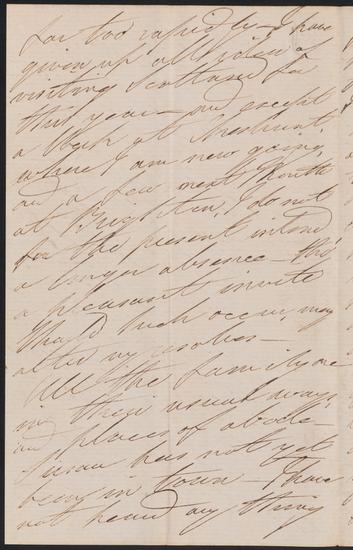 far too rapidly - I have
given up all idea of
visiting Scotland for
this year - and except
a Week at Cheshunt,
where I am now going,
and a few next Month
at Brighton, I do not
for the present intend
a longer absence - tho'
a pleasant invite
should such occur, may
alter my resolves -
All the family are
in their usual ways,
and places of abode -
Susan has not yet
being in town - I have
not heard any thing